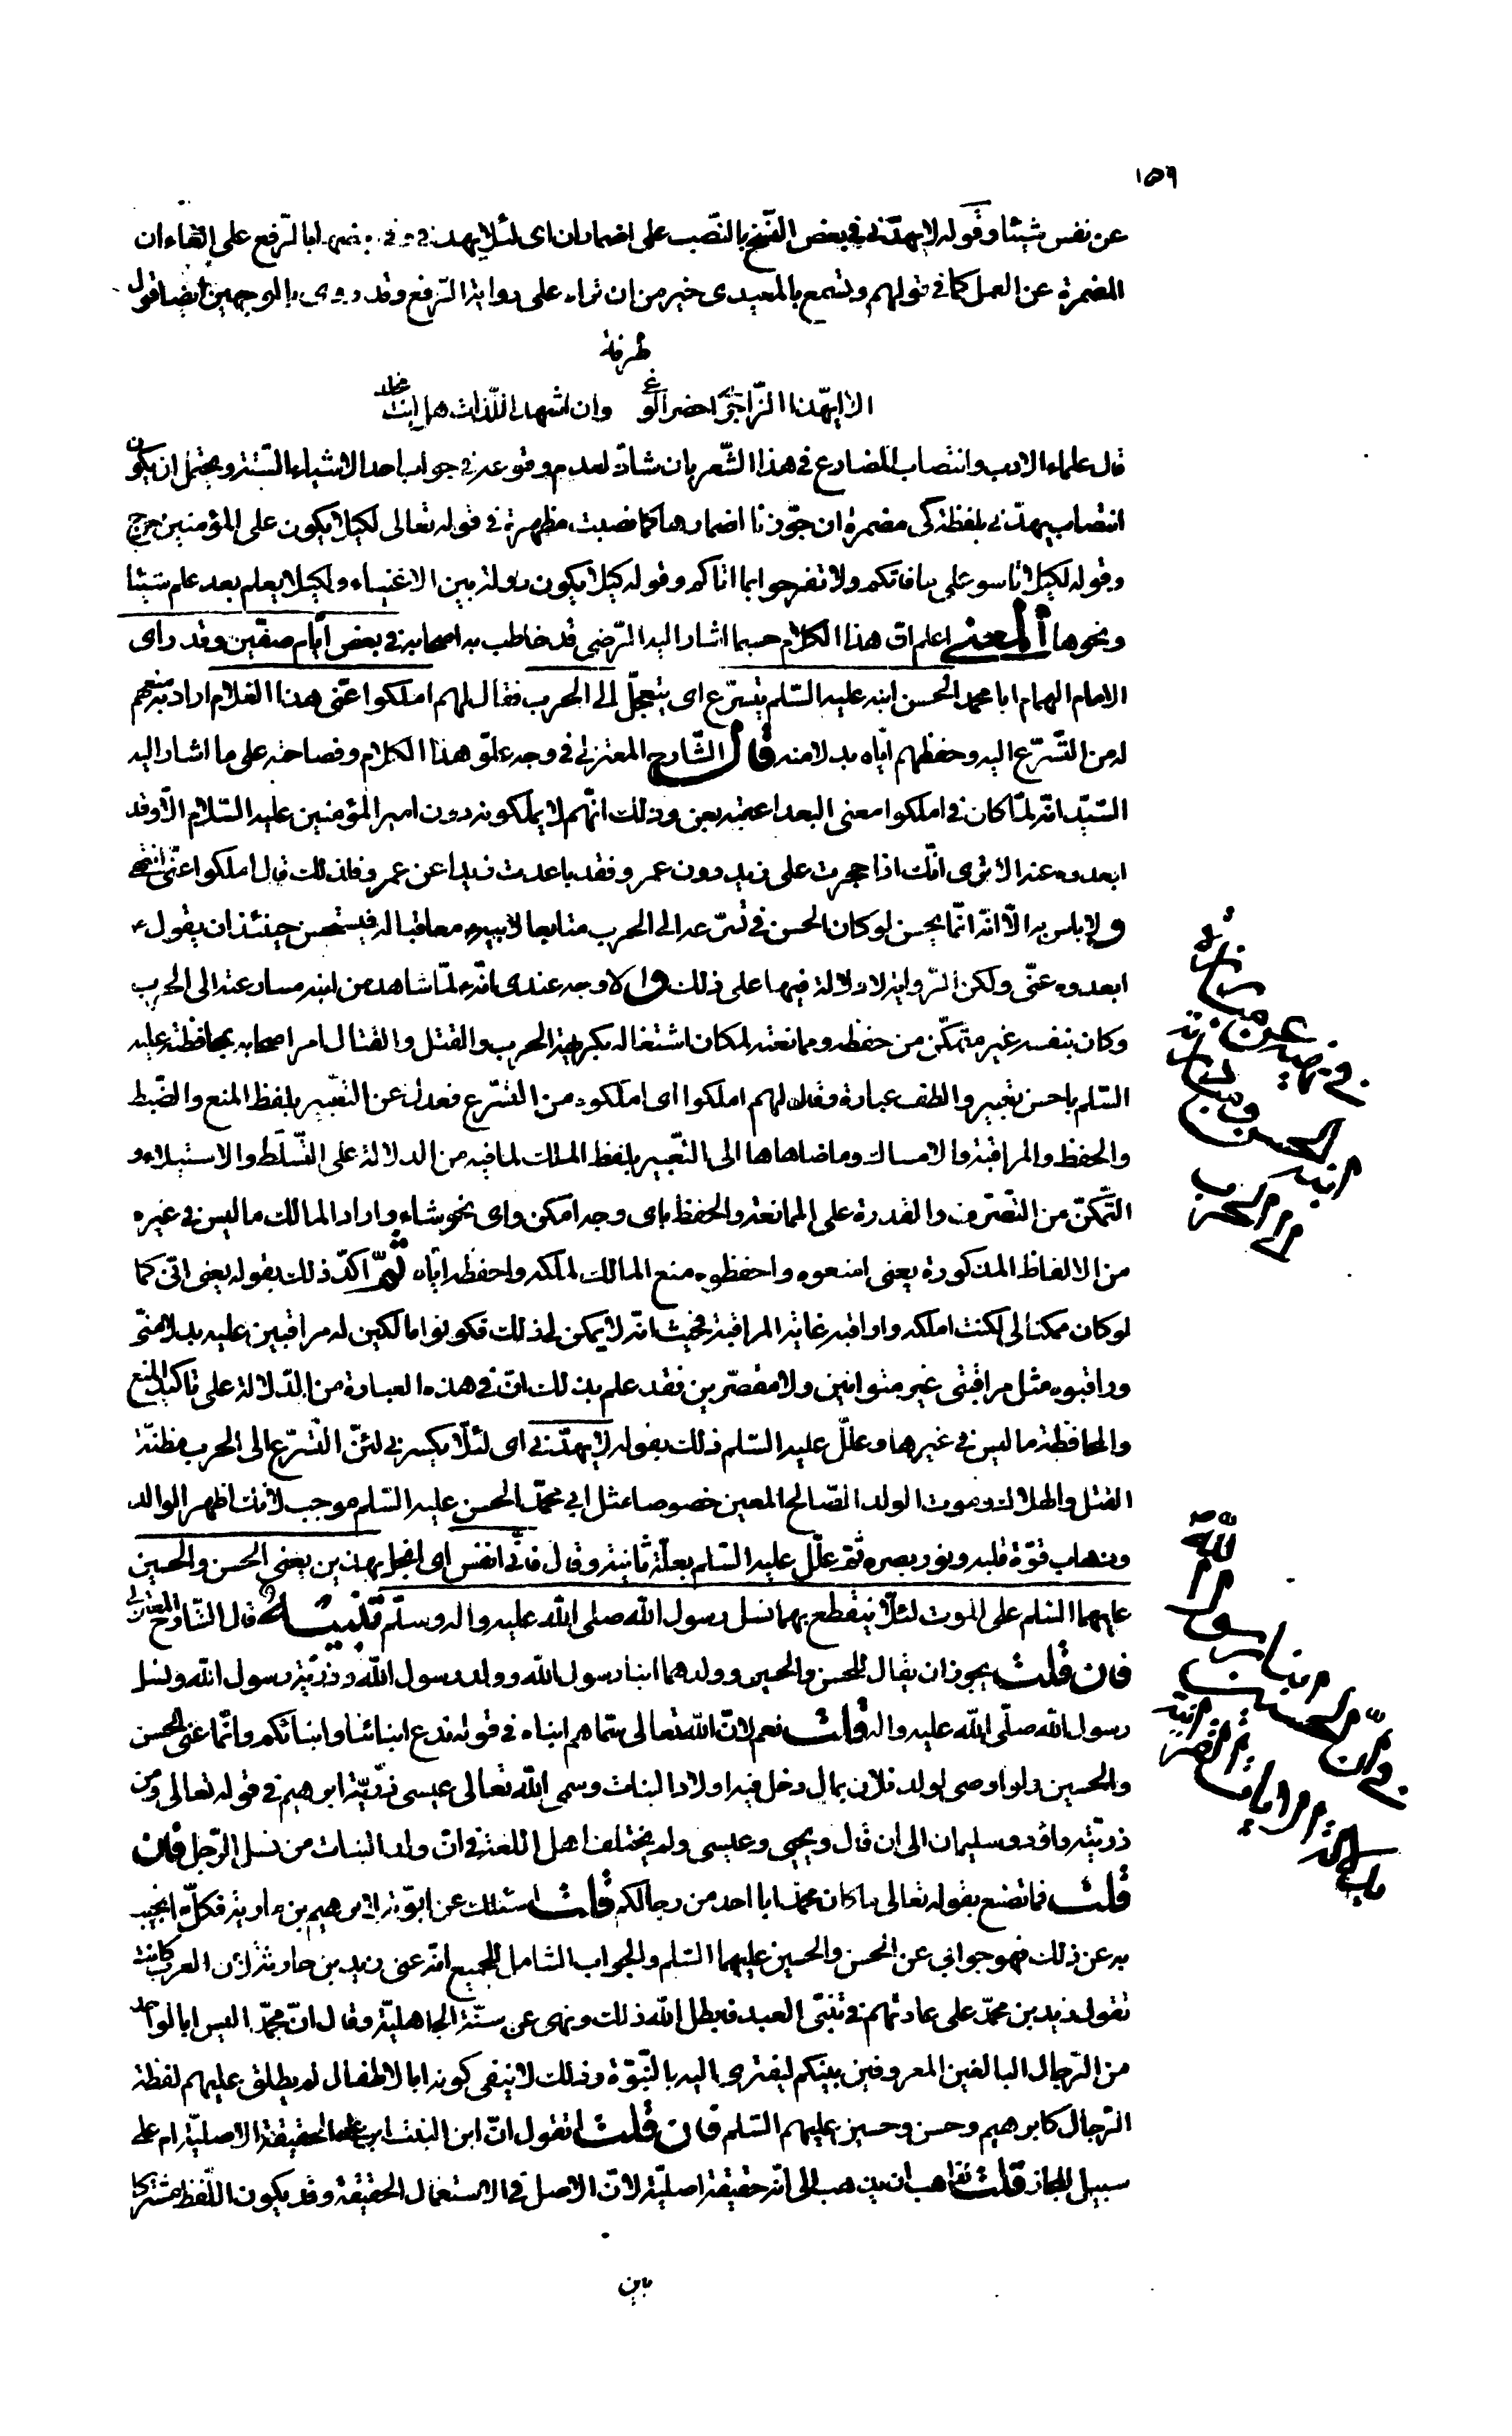 ١٥٩
عن نفس شيئا وقوله لا يهدّني في بعض النّسخ بالنّصب على اضمار ان اى لئلا يهدّني وفي بعضها بالرّفع على الغاء ان
المضمرة عن العمل كما في قولهم وتسمع بالمعيدى خير من ان تراه على رواية الرّفع وقد روى بالوجهين ايضا قول
طرفة
الا ايّهذا الزّاجرى احضر الوغى وان اشهد اللّذات هل انت مخلد
قال علماء الادب وانتصاب المضارع في هذا الشّعر بان شاذّ لعدم وقوعه في جواب احد الاشياء السّتة ويحتمل ان يكون
انتصاب يهدّني بلفظة كى مضمرة ان جوّزنا اضمارها كما نصبت مظهرة في قوله تعالى لكيلا يكون على المؤمنين حرج
وقوله لكيلا تاسو على ما فاتكم ولا تفرحوا بما اتاكم وقوله كيلا يكون دولة بين الاغنياء ولكيلا يعلم بعد علم شيئا
ونحوها المعنى اعلم انّ هذا الكلام حسبما اشار اليه الرّضى قد خاطب به اصحابه في بعض ايّام صفّين وقد راى
الامام الهمام ابا محمد الحسن ابنه عليه السّلم يتسرّع اى يتعجّل الى الحرب فقال لهم املكوا عنّى هذا الغلام اراد به منعهم
له من التّسرّع اليه وحفظهم ايّاه بدلا منه قال الشّارح المعتزلى في وجه علوّ هذا الكلام وفصاحته على ما اشار اليه
السّيّد انّه لمّا كان في املكوا معنى البعد اعقبه بعن وذلك انّهم لا يملكونه دون امير المؤمنين عليه السّلام الّا وقد
ابعدوه عنه الا ترى انّك اذا حجرت على زيد دون عمرو فقد باعدت زيدا عن عمرو فلذلك قال املكوا عنّى انتهى
ولا باس به الّا انّه انّما يحسن لو كان الحسن في تسرّعه الى الحرب متابعا لابيه معاقبا له فيستحسن حينئذ ان يقول
ابعدوه عنّى ولكن الرّواية لا دلالة فيها على ذلك والاوجه عندى انّه لمّا شاهد من ابنه مسارعته الى الحرب
وكان بنفسه غير متمكّن من حفظه وممانعته لمكان اشتغاله بكريهة الحرب والقتل والقتال امر اصحابه بمحافظته عليه
السّلم باحسن تعبير والطف عبارة وقال لهم املكوا اى املكوه من التّسرّع فعدل عن التّعبير بلفظ المنع والضّبط
والحفظ والمراقبة والامساك وما ضاهاها الى التّعبير بلفظ الملك لما فيه من الدلالة على التّسلّط والاستيلاء و
التّمكّن من التّصرّف والقدرة على الممانعة والحفظ باى وجه امكن واى نحو شاء واراد المالك ما ليس في غيره
من الالفاظ المذكورة يعنى امنعوه واحفظوه منع المالك لملكه واحفظه ايّاه ثمّ اكّد ذلك بقوله يعنى انّى كما
لو كان ممكنا لى لكنت املكه واراقبه غاية المراقبة فحيث انّه لا يمكن لى ذلك فكونوا مالكين له مراقبين عليه بدلا منّى
وراقبوه مثل مراقبتى غير متوانين ولا مقصّرين فقد علم بذلك انّ في هذه العبارة من الدّلالة على تاكيد المنع
والمحافظة ما ليس في غيرها وعلّل عليه السّلم ذلك بقوله لا يهدّني اى لئلّا يكسرني لانّ التّسرّع الى الحرب مظنّة
القتل والهلاك وموت الولد الصّالح المعين خصوصا مثل ابى محمّد الحسن عليه السّلم موجب لانكسار ظهر الوالد
وذهاب قوّة قلبه ونور بصره ثمّ علّل عليه السّلم بعلّة ثانية وقال فانّى انفس اى ابخل بهذين يعنى الحسن والحسين
عليهما السّلم على الموت لئلّا ينقطع بهما نسل رسول الله صلى الله عليه واله وسلّم تنبيه قال الشّارح المعتزلى
فان قلت يجوز ان يقال للحسن والحسين وولدهما ابناء رسول الله وولد رسول الله وذرّية رسول الله ونسل
رسول الله صلّى الله عليه واله قلت نعم لانّ الله تعالى سمّاهم ابناءه في قوله ندع ابنائنا وابنائكم وانّما عنى الحسن
والحسين ولو اوصى لولد فلان بمال دخل فيه اولاد البنات وسمى الله تعالى عيسى ذرّيّة ابرهيم في قوله تعالى ومن
ذرّيّته داود وسليمان الى ان قال ويحيى وعيسى ولم يختلف اهل اللغة في انّ ولد البنات من نسل الرّجل فان
قلت فما تصنع بقوله تعالى ما كان محمّد ابا احد من رجالكم قلت اسئلك عن ابوّته لابرهيم بن مارية فكلّما تجيب
به عن ذلك فهو جوابى عن الحسن والحسين عليهما السّلم والجواب الشامل للجميع انّه عنى زيد بن حارثة لانّ العرب كانت
تقول زيد بن محمّد على عادتهم في تبنّى العبيد فابطل الله ذلك ونهى عن سنّة الجاهليّة وقال انّ محمّدا ليس ابا لواحد
من الرّجال البالغين المعروفين بينكم ليعتزى اليه بالنّبوّة وذلك لا ينفى كونه ابا لاطفال لم يطلق عليهم لفظة
الرّجال كابرهيم وحسن وحسين عليهم السّلم فان قلت اتقول انّ ابن البنت ابن على الحقيقة الاصليّة ام على
سبيل المجاز قلت لذاهب ان يذهب الى انّه حقيقة اصليّة لانّ الاصل في الاستعمال الحقيقة وقد يكون اللّفظ مشتركا
بين
الحسن
ابنيه
الى الحرب